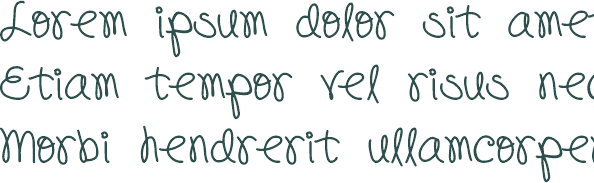 Lorem ipsum dolor sit ame
Etiam tempor vel risus nec
Morbi hendrerit ullamcorper